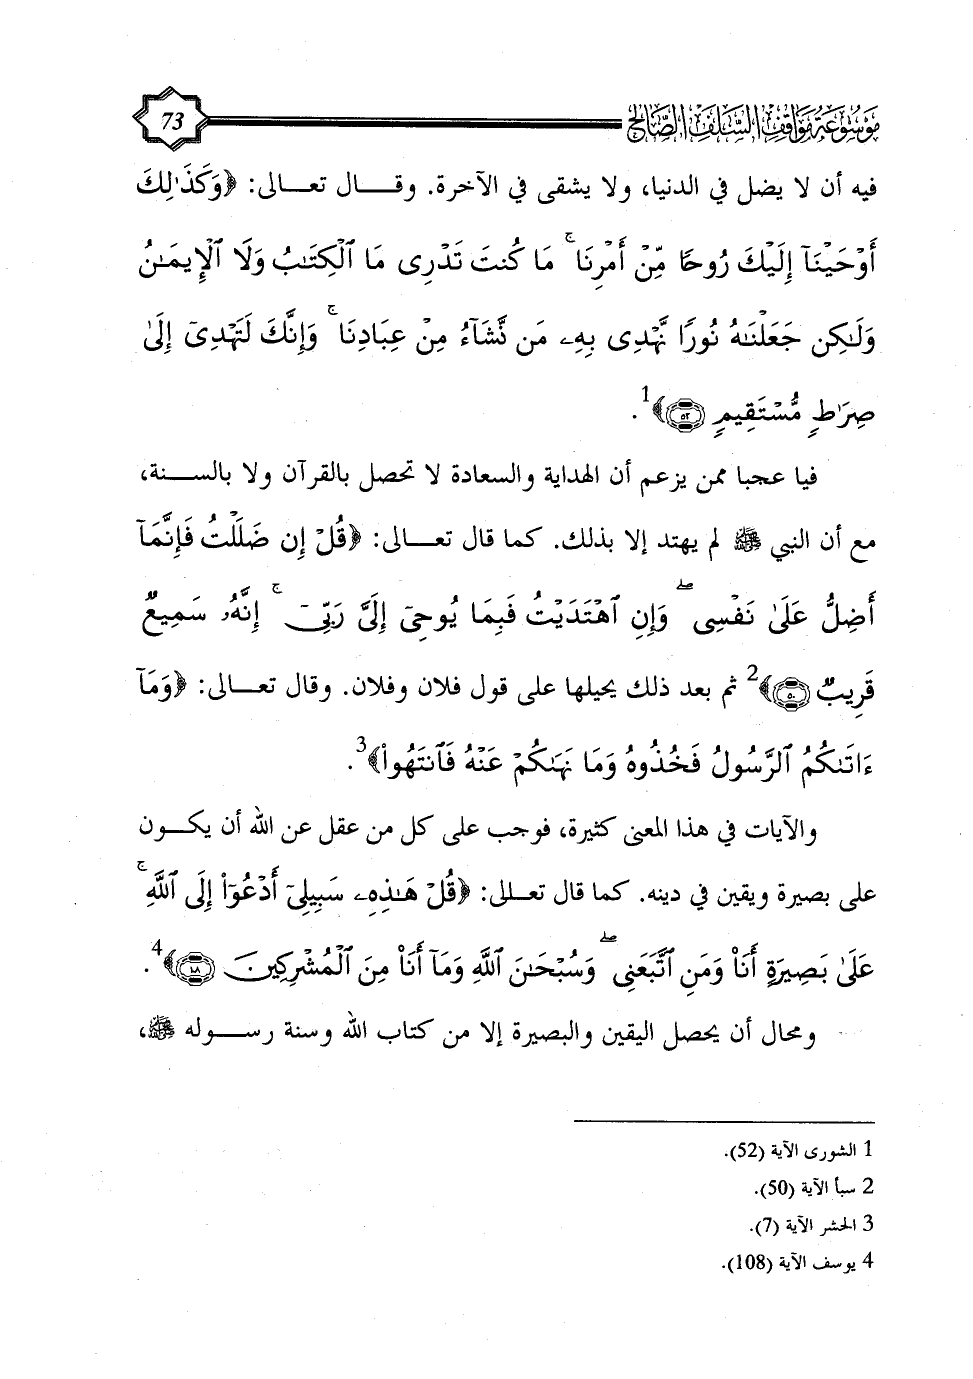 موسوعة مواقف السلف الصالح 73
فيه أن لا يضل في الدنيا، ولا يشقى في الآخرة. وقـــال تعـــالى: ﴿وَكَذَٰلِكَ
أَوْحَيْنَآ إِلَيْكَ رُوحًا مِّنْ أَمْرِنَا ۚ مَا كُنتَ تَدْرِى مَا ٱلْكِتَـٰبُ وَلَا ٱلْإِيمَـٰنُ
وَلَـٰكِن جَعَلْنَـٰهُ نُورًا نَّهْدِى بِهِۦ مَن نَّشَآءُ مِنْ عِبَادِنَا ۚ وَإِنَّكَ لَتَهْدِىٓ إِلَىٰ
صِرَٰطٍ مُّسْتَقِيمٍ ۝٥٢﴾1.
فيا عجبا ممن يزعم أن الهداية والسعادة لا تحصل بالقرآن ولا بالســـنة،
مع أن النبي ﷺ لم يهتد إلا بذلك. كما قال تعـــالى: ﴿قُلْ إِن ضَلَلْتُ فَإِنَّمَآ
أَضِلُّ عَلَىٰ نَفْسِى ۖ وَإِنِ ٱهْتَدَيْتُ فَبِمَا يُوحِىٓ إِلَىَّ رَبِّىٓ ۚ إِنَّهُۥ سَمِيعٌ
قَرِيبٌ ۝٥٠﴾2 ثم بعد ذلك يحيلها على قول فلان وفلان. وقال تعـــالى: ﴿وَمَآ
ءَاتَىٰكُمُ ٱلرَّسُولُ فَخُذُوهُ وَمَا نَهَىٰكُمْ عَنْهُ فَٱنتَهُوا۟﴾3.
والآيات في هذا المعنى كثيرة، فوجب على كل من عقل عن الله أن يكـــون
على بصيرة ويقين في دينه. كما قال تعـــالى: ﴿قُلْ هَـٰذِهِۦ سَبِيلِىٓ أَدْعُوٓا۟ إِلَى ٱللَّهِ ۚ
عَلَىٰ بَصِيرَةٍ أَنَا۠ وَمَنِ ٱتَّبَعَنِى ۖ وَسُبْحَـٰنَ ٱللَّهِ وَمَآ أَنَا۠ مِنَ ٱلْمُشْرِكِينَ ۝١٠٨﴾4.
ومحال أن يحصل اليقين والبصيرة إلا من كتاب الله وسنة رســـوله ﷺ،
1 الشورى الآية (52).
2 سبأ الآية (50).
3 الحشر الآية (7).
4 يوسف الآية (108).